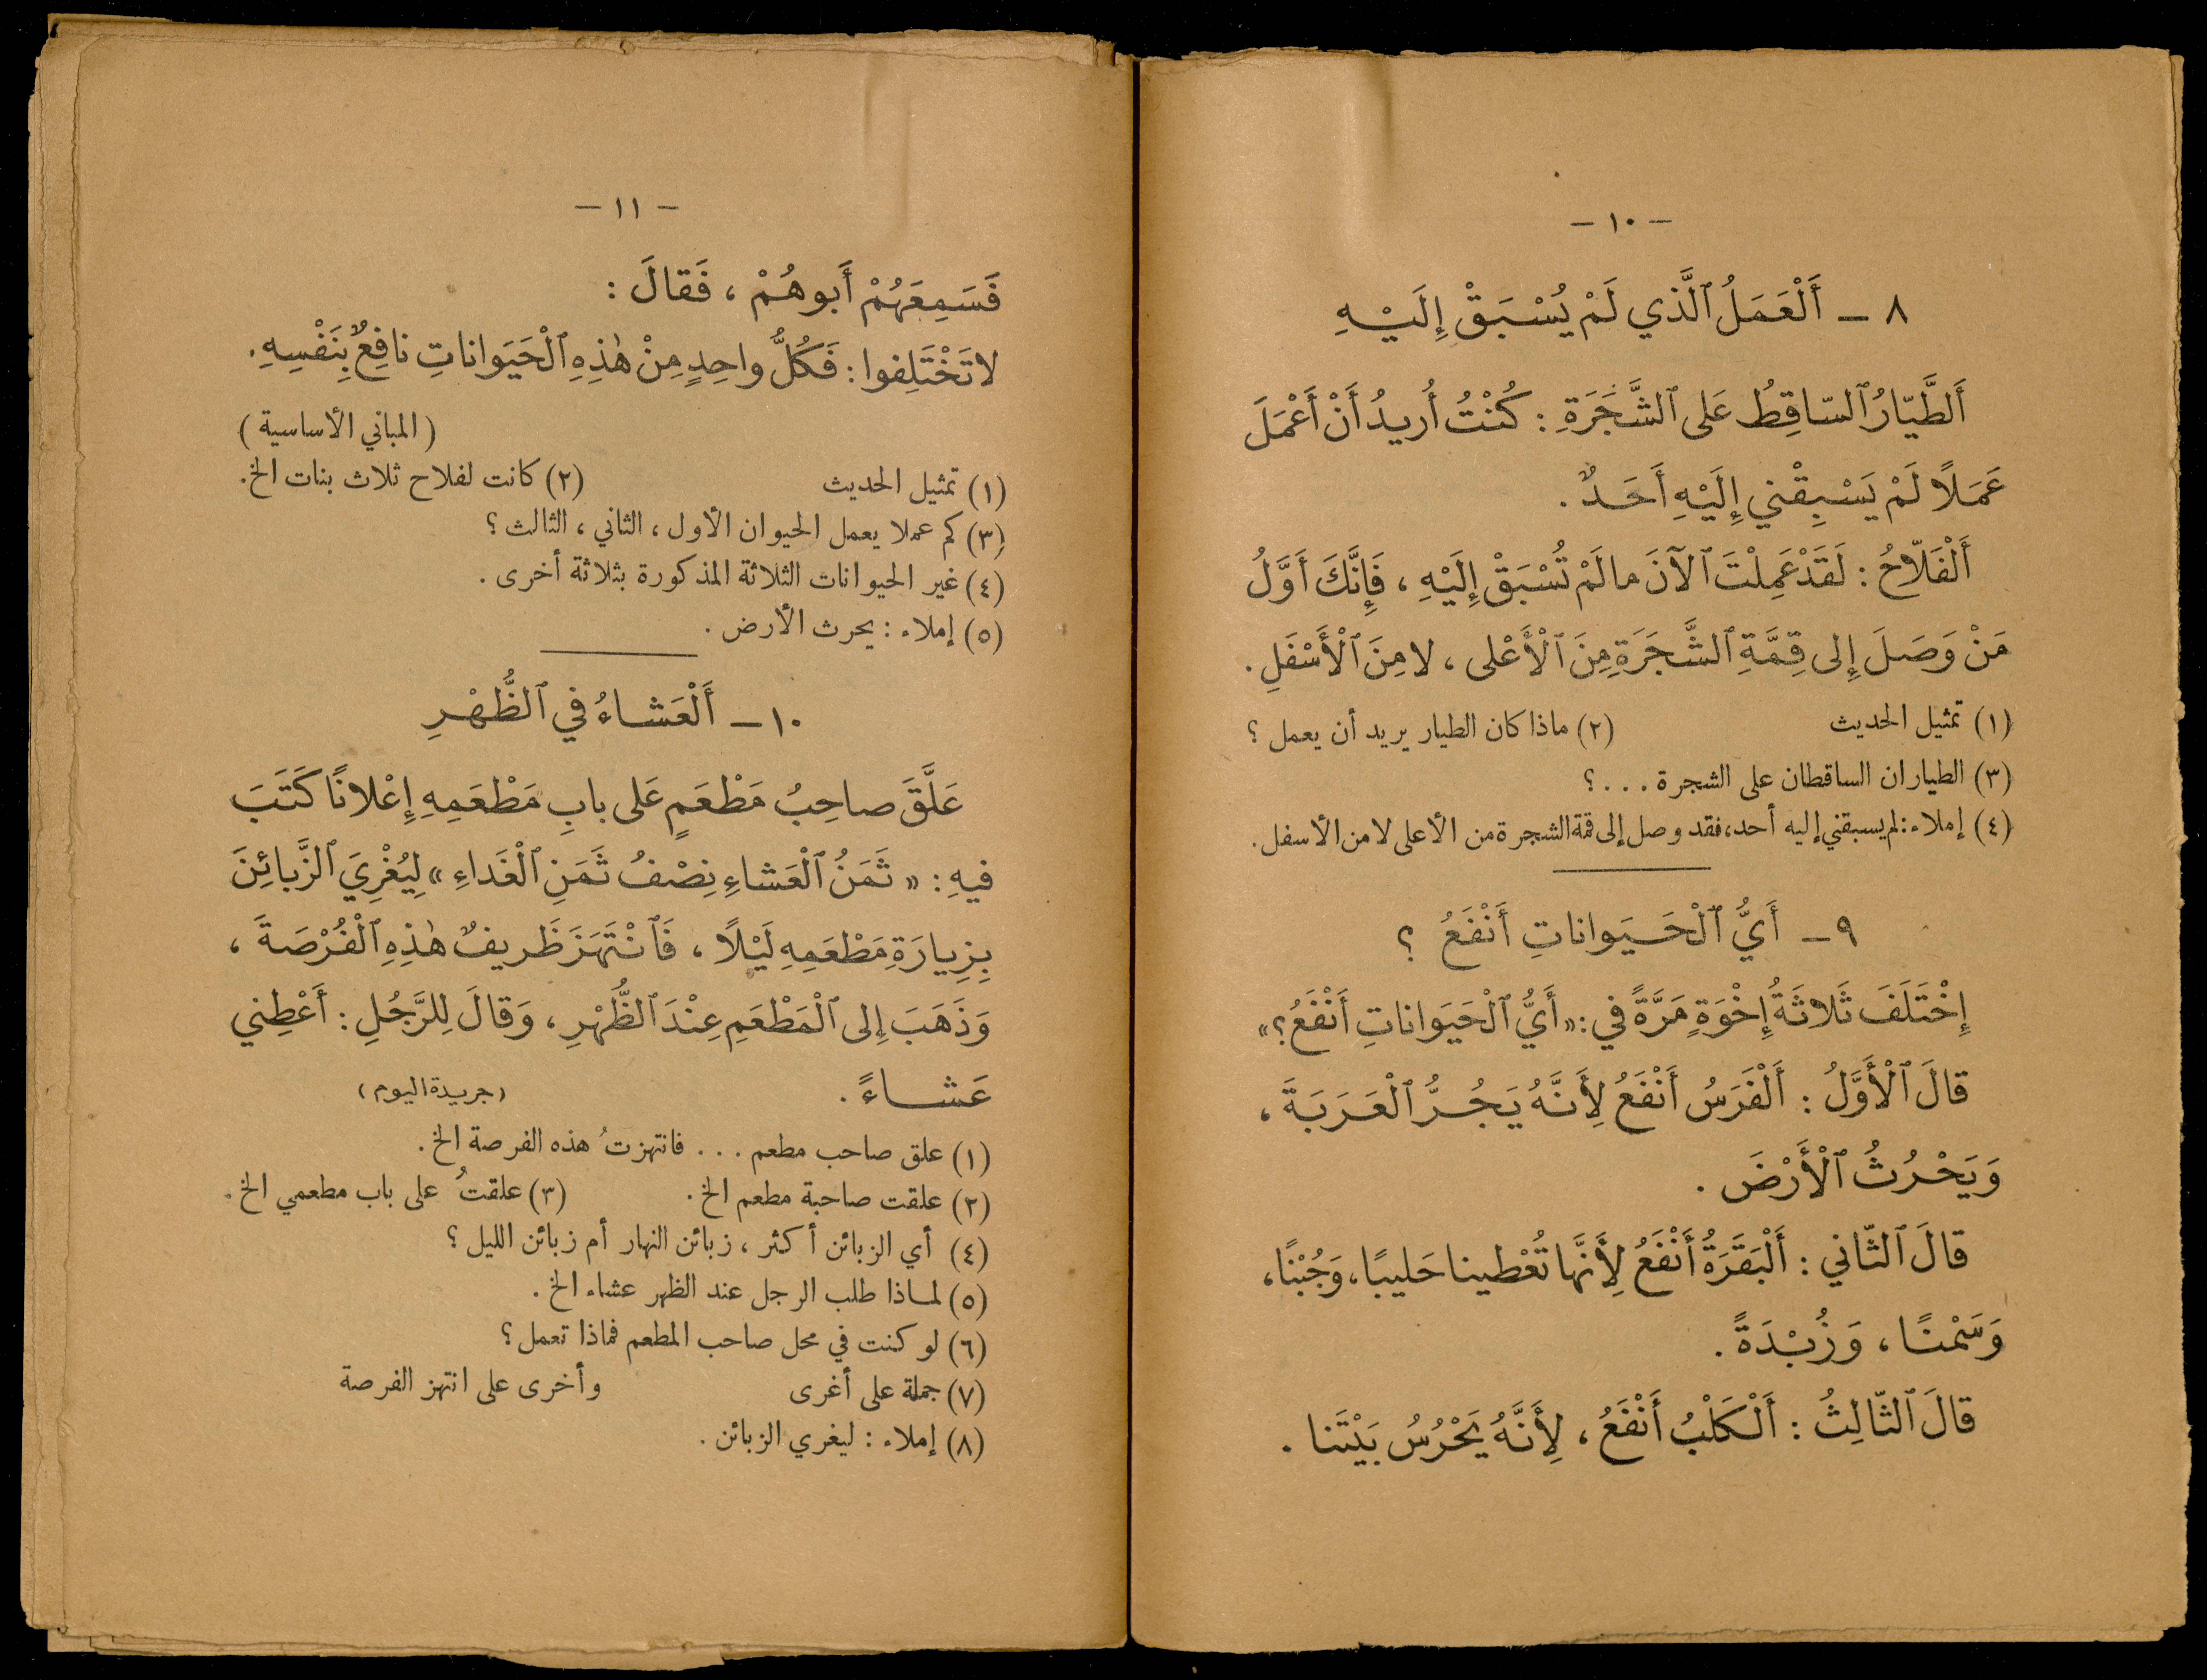 – ١٠ –
٨ – أَلْعَمَلُ ٱلَّذي لَمْ يُسْبَقْ إِلَيْهِ
أَلطَّيّارُ ٱلسّاقِطُ عَلى ٱلشَّجَرَةِ : كُنْتُ أُريدُ أَنْ أَعْمَلَ
عَمَلًا لَمْ يَسْبِقْني إِلَيْهِ أَحَدٌ .
أَلْفَلّاحُ : لَقَدْ عَمِلْتَ ٱلآنَ ما لَمْ تُسْبَقْ إِلَيْهِ ، فَإِنَّكَ أَوَّلُ
مَنْ وَصَلَ إِلى قِمَّةِ ٱلشَّجَرَةِ مِنَ ٱلْأَعْلى ، لا مِنَ ٱلْأَسْفَلِ .
(١) تمثيل الحديث (٢) ماذا كان الطيار يريد أن يعمل ؟
(٣) الطياران الساقطان على الشجرة . . . ؟
(٤) إملاء : لم يسبقني إليه أحد، فقد وصل إلى قمة الشجرة من الأعلى لا من الأسفل .
٩ – أَيُّ ٱلْحَيَواناتِ أَنْفَعُ ؟
إِخْتَلَفَ ثَلاثَةُ إِخْوَةٍ مَرَّةً في : « أَيُّ ٱلْحَيَواناتِ أَنْفَعُ ؟ »
قالَ ٱلْأَوَّلُ : أَلْفَرَسُ أَنْفَعُ لِأَنَّهُ يَجُرُّ ٱلْعَرَبَةَ ،
وَيَحْرُثُ ٱلْأَرْضَ .
قالَ ٱلثّاني : أَلْبَقَرَةُ أَنْفَعُ لِأَنَّها تُعْطينا حَليبًا ، وَجُبْنًا ،
وَسَمْنًا ، وَزُبْدَةً .
قالَ ٱلثّالِثُ : أَلْكَلْبُ أَنْفَعُ ، لِأَنَّهُ يَحْرُسُ بَيْتَنا .
– ١١ –
فَسَمِعَهُمْ أَبوهُمْ ، فَقالَ :
لا تَخْتَلِفوا : فَكُلُّ واحِدٍ مِنْ هٰذِهِ ٱلْحَيَواناتِ نافِعٌ بِنَفْسِهِ .
( المباني الأساسية )
(١) تمثيل الحديث (٢) كانت لفلاح ثلاث بنات الخ .
(٣) كم عملا يعمل الحيوان الأول ، الثاني ، الثالث ؟
(٤) غير الحيوانات الثلاثة المذكورة بثلاثة أخرى .
(٥) إملاء : يحرث الأرض .
١٠ – أَلْعَشاءُ في ٱلظُّهْرِ
عَلَّقَ صاحِبُ مَطْعَمٍ عَلى بابِ مَطْعَمِهِ إِعْلانًا كَتَبَ
فيهِ : « ثَمَنُ ٱلْعَشاءِ نِصْفُ ثَمَنِ ٱلْغَداءِ » لِيُغْرِيَ ٱلزَّبائِنَ
بِزِيارَةِ مَطْعَمِهِ لَيْلًا ، فَٱنْتَهَزَ ظَريفٌ هٰذِهِ ٱلْفُرْصَةَ ،
وَذَهَبَ إِلى ٱلْمَطْعَمِ عِنْدَ ٱلظُّهْرِ ، وَقالَ لِلرَّجُلِ : أَعْطِني
عَشاءً . (جريدة اليوم)
(١) علق صاحب مطعم . . . فانتهزتُ هذه الفرصة الخ .
(٢) علقت صاحبة مطعم الخ . (٣) علقتُ على باب مطعمي الخ .
(٤) أي الزبائن أكثر ، زبائن النهار أم زبائن الليل ؟
(٥) لماذا طلب الرجل عند الظهر عشاء الخ .
(٦) لو كنت في محل صاحب المطعم فماذا تعمل ؟
(٧) جملة على أغرى وأخرى على انتهز الفرصة
(٨) إملاء : ليغري الزبائن .